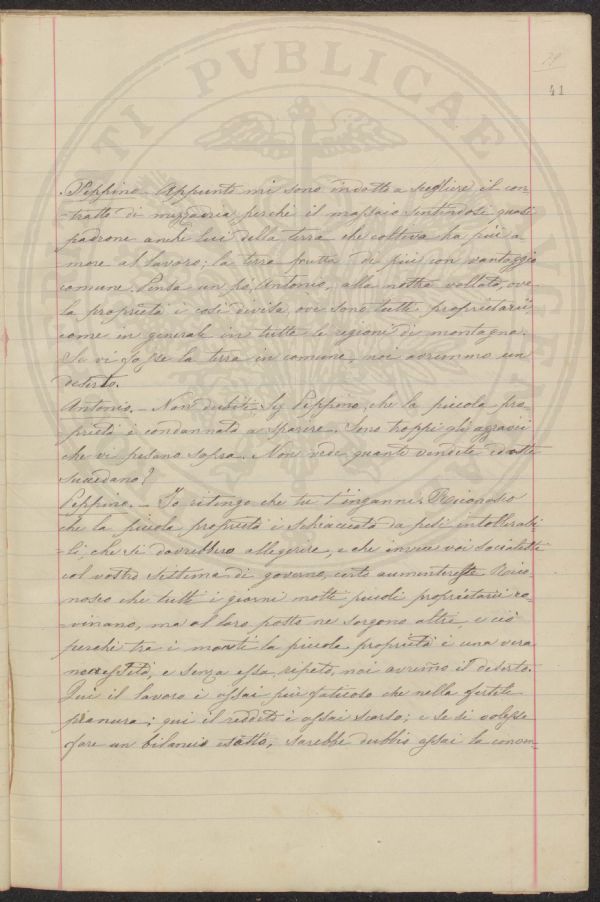 41
Peppino - Appunto mi sono indotto a scegliere il con
-tratto di mezzadria perchè il massaio sentendosi quasi
padrone anche lui della terra che coltiva ha più a
more al lavoro; la terra frutta di più con vantaggio
comune. Pensa un po, Antonio, alla nostra vallata, ove
la proprietà è così divisa, ove sono tutti proprietarii
come in generale in tutte le regioni di montagna.
Se vi fosse la terra in comune, noi avremmo un
deserto.
Antonio. - Non dubiti, Sig Peppino, che la piccola pro-
prietà è condannata a sparire. Sono troppi gli agravii
che vi pesano sopra. Non vede quante vendite
succedano?
Peppino. - Io ritengo che tu t'inganni. Riconosco
che la piccola proprietà è schiacciata da pesi intollerabi
-li, che si dovrebbero allegerire, e che invece voi socialisti
col vostro sistema di governo, certo aumentereste. Rico-
nosco che tutti i giorni molti piccoli proprietarii ro-
vinano, ma al loro posto ne sorgono altri, e ciò
perchè tra i monti la piccola proprietà è una vera
necessità, e senza essa, ripeto, noi avremo il deserto.
Qui il lavoro è assai più faticoso che nella fertile
pianura; qui il reddito è assai scarso; e se si volesse
fare un bilancio esatto, sarebbe dubbia assai la conven-
PVBLICAE